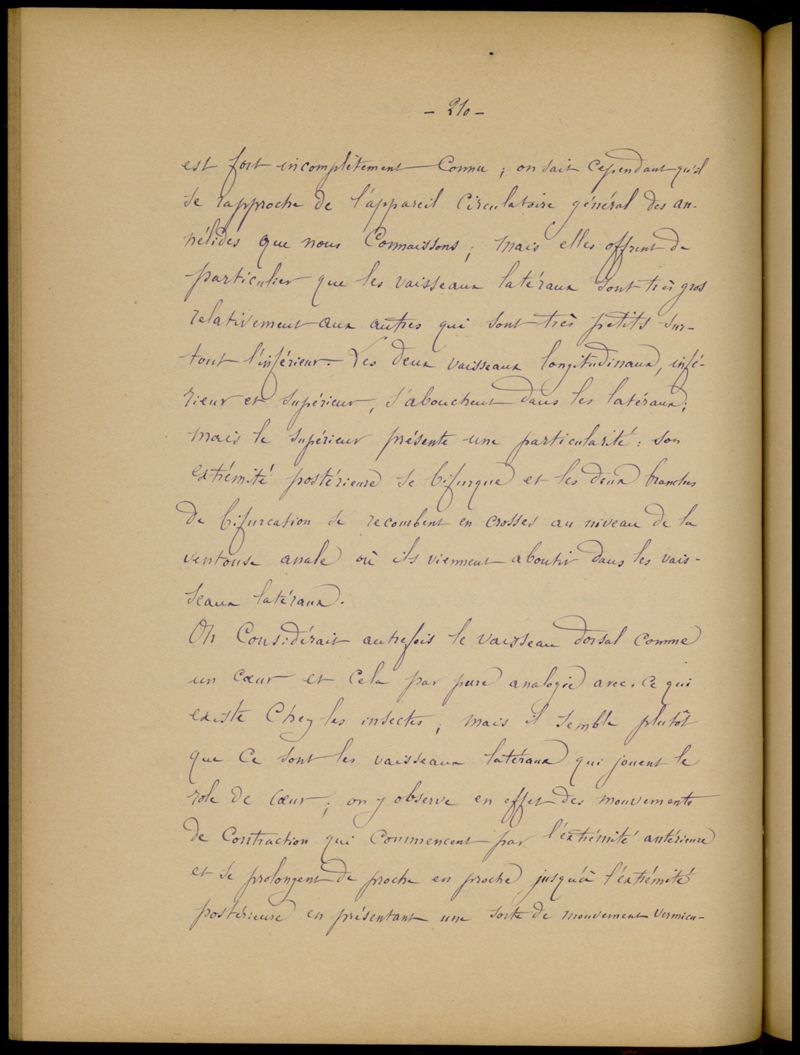 - 210 -
est fort incomplètement connu ; on sait cependant qu'il
se rapproche de l'appareil circulatoire général des an-
nélides que nous connaissons ; mais elles offrent de
particulier que les vaisseaux latéraux sont très gros
relativement aux autres qui sont très petits sur-
tout l'inférieur. Les deux vaisseaux longitudinaux, infé-
rieur et supérieur, s'abouchent dans les latéraux ;
mais le supérieur présente une particularité : son
extrémité postérieure se bifurque et les deux branches
de bifurcation se recombent en crosses au niveau de la
ventouse anale où ils viennent aboutir dans les vais-
seaux latéraux.
On considérait autrefois le vaisseau dorsal comme
un cœur et cela par pure analogie avec ce qui
existe chez les insectes ; mais il semble plutôt
que ce sont les vaisseaux latéraux qui jouent le
role de cœur ; on y observe en effet des mouvements
de contraction qui commencent par l'extrémité antérieure
et se prolongent de proche en proche jusqu'à l'extrémité
postérieure en présentant une sorte de mouvement vermicu-